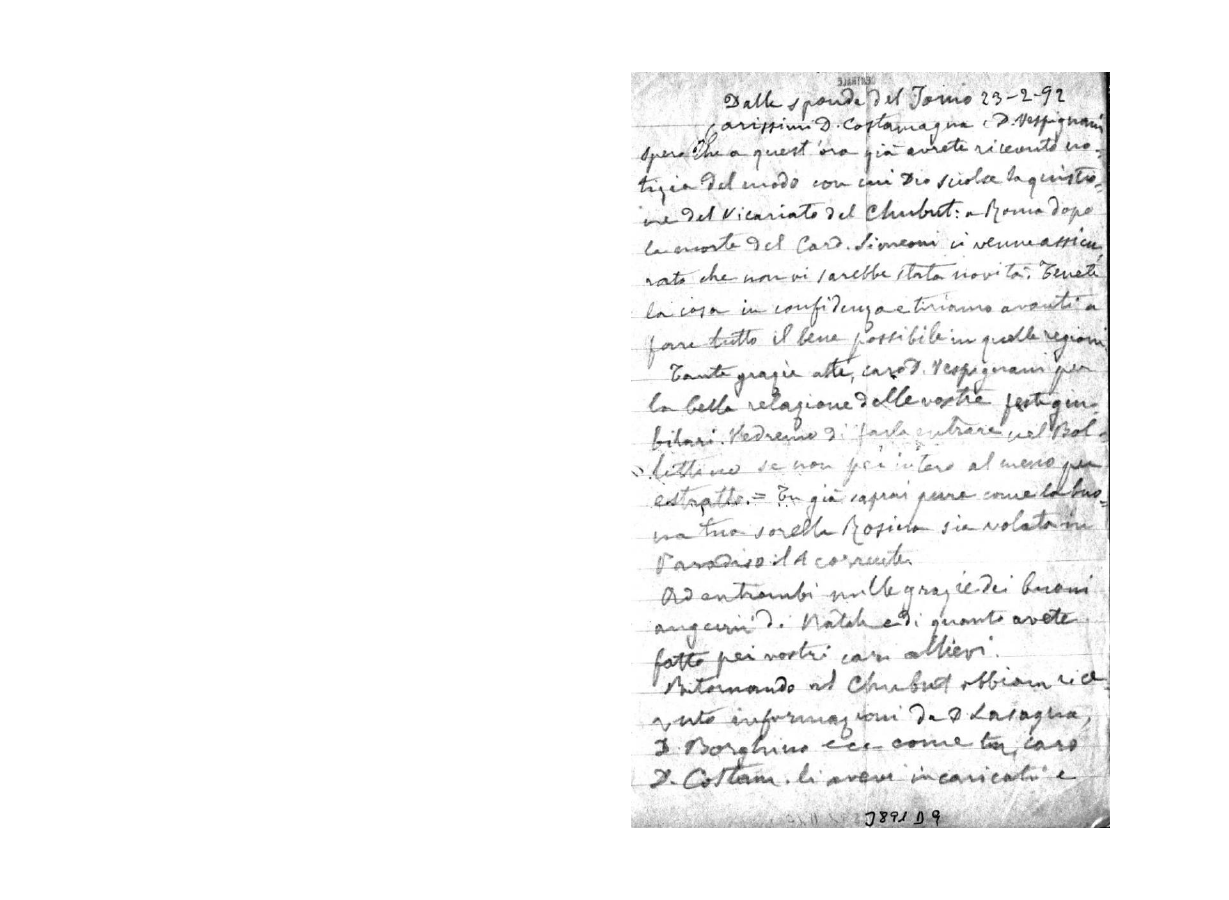 CENTRALE
Dalle sponde del Torino 23-2-92
Carissimi D. Costamagna e D. Vespignani
spero che a quest'ora già avrete ricevuto no-
tizia del modo con cui Dio sciolse la questio-
ne del Vicariato del Chubut: a Roma dopo
la morte del Card. Simeoni ci venne assicu-
rato che non vi sarebbe stata novità. Tenete
la cosa in confidenza e tiriamo avanti a
fare tutto il bene possibile in quelle regioni
Tante grazie a te, caro D. Vespignani per
la bella relazione delle vostre feste giu-
bilari. Vedremo di farla entrare nel Bol-
lettino se non per intero al meno per
estratto. = Tu già saprai pure come la buo-
na tua sorella Rosina sia volata in
Paradiso il 4 corrente.
Ad entrambi mille grazie dei buoni
augurii di Natale e di quanto avete
fatto pei nostri cari allievi.
Ritornando al Chubut abbiam rice-
vuto informazioni da D. Lasagna,
D. Borghino ecc come tu, caro
D. Costam. li avevi incaricati e
J891 D 9